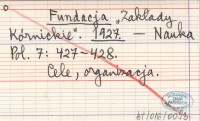 Fundacja „Zakłady
Kórnickie". 1927. — Nauka
Pol. 7: 427-428.
Cele, organizacja.